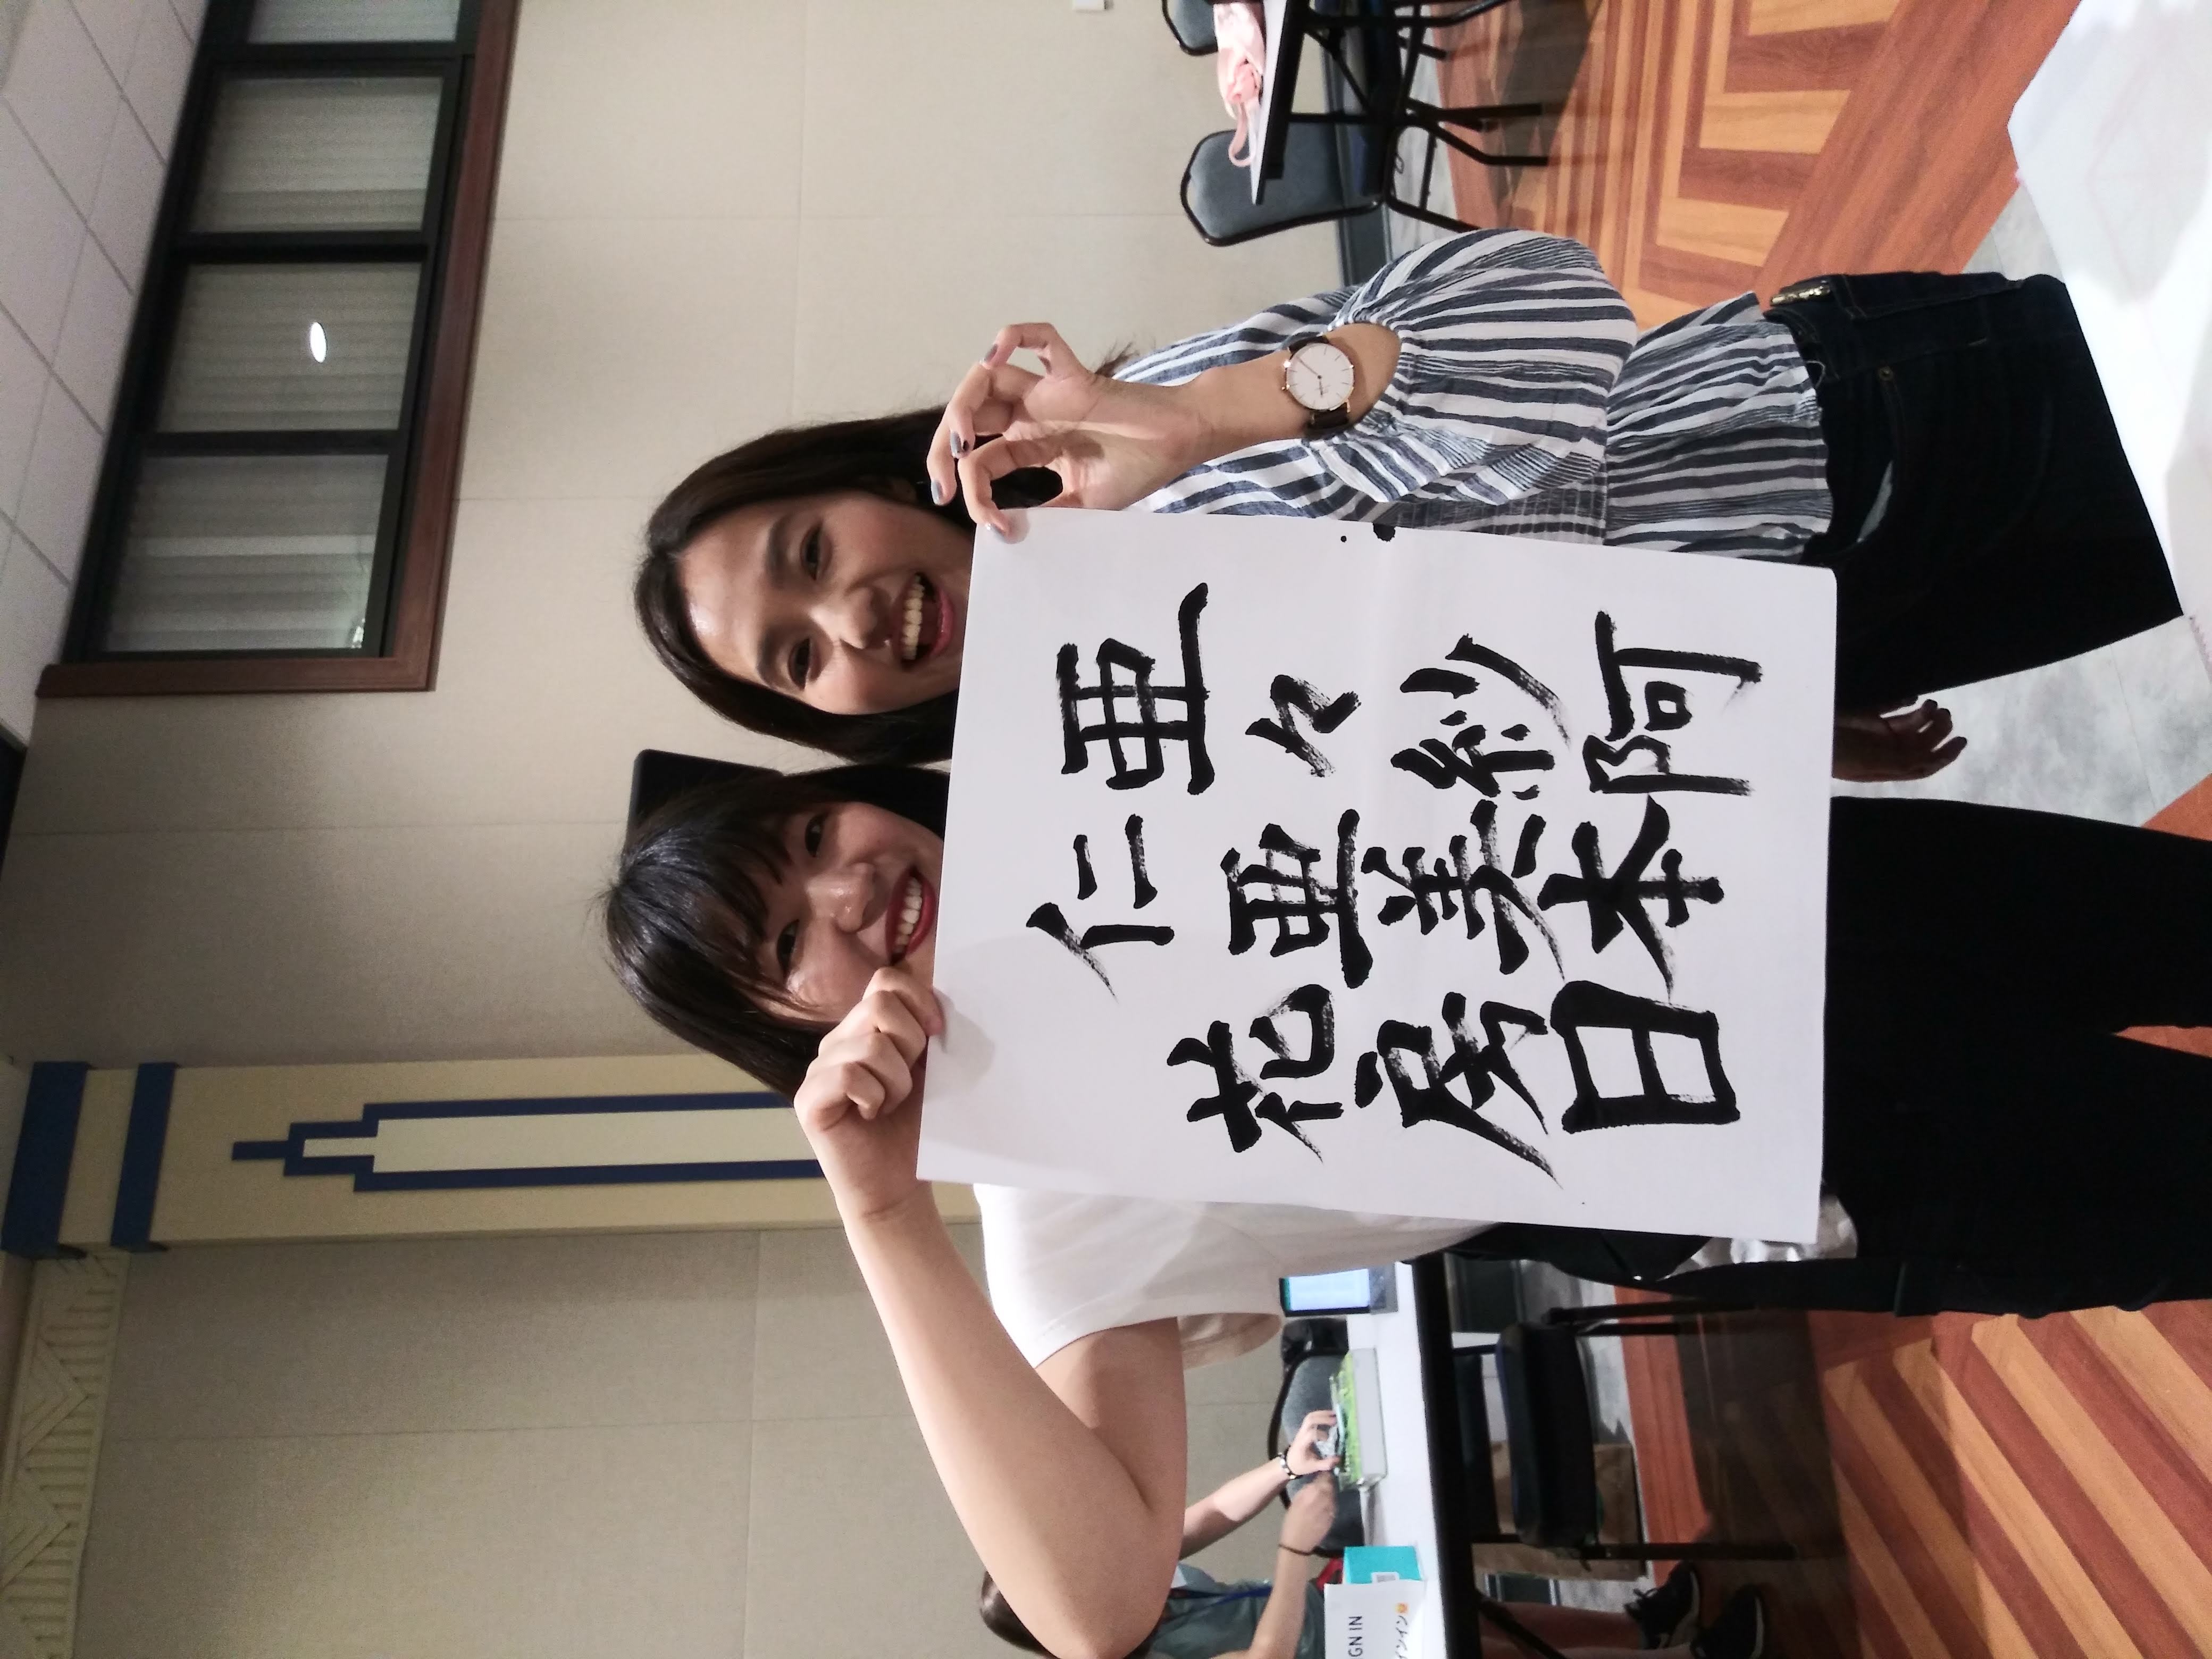 亜々紗阿
仁亜美本
花房日
IGN IN
インイン